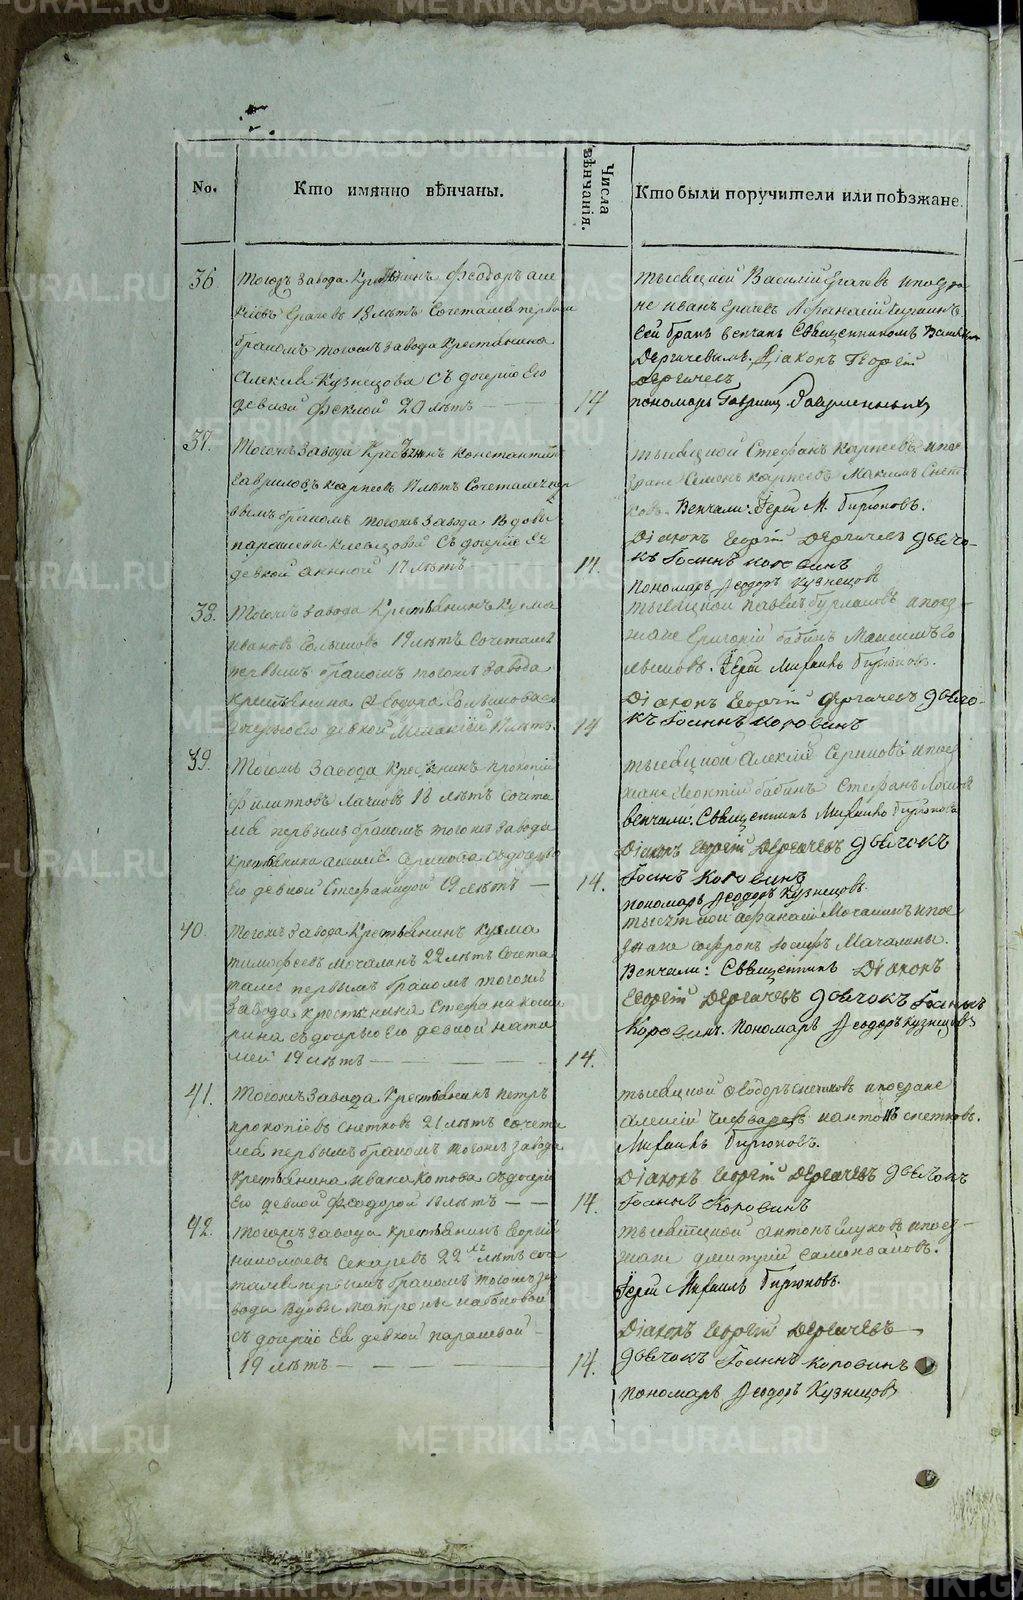 No.
Кто имянно вѣнчаны.
Числа вѣнчанія.
Кто были поручители или поѣзжане.
36
Тогожъ завода Крестьянинъ Феодоръ Але
ксіевъ Грачевъ 18 лѣтъ Сочетался первымъ
бракомъ тогожъ завода крестьянина
Алексѣя Кузнецова съ дочерію Его
девкой Феклой 20 лѣтъ
14
тысяцкой Василий Грачевъ и поезжа
не иванъ Грачевъ Афанасий
сей бракъ венчанъ Священникомъ
Дергачевымъ. Діаконъ Георгій
Дергачевъ
пономарь Гавриилъ
37.
Тогожъ завода Крестьянинъ Константинъ
Гавриловъ карпеевъ 17 лѣтъ Сочетался пер
вымъ бракомъ тогожъ завода Вдовы
парасковьи съ дочерію Ея
девкой Анной 17 лѣтъ
14.
тысяцкой Стефанъ карпеевъ и поез
жане Семенъ карпеевъ Максимъ Снет
ковъ. Венчали: Іерей М. Бирюковъ.
Діаконъ Георгій Дергачевъ дьячо-
къ Іоаннъ коровинъ
пономарь Феодоръ Кузнецовъ
38.
Тогожъ завода Крестьянинъ Кузма
ивановъ Голышовъ 19 лѣтъ Сочетался
первымъ бракомъ тогожъ завода
крестьянина Феодора Голышова съ
дочерью его девкой Меланіей 17 лѣтъ
14
тысяцкой павелъ бурмаковъ и поез-
жане Григорій бабинъ Максимъ Го
лышовъ. Іерей Михаилъ Бирюковъ.
Діаконъ Георгій Дергачевъ дьячо-
къ Іоаннъ Коровинъ
39.
Тогожъ завода Крестьянинъ прокопій
Филипповъ 18 лѣтъ Сочета
лся первымъ бракомъ тогожъ завода
крестьянина Алексѣя съ дочерью
Его девкой Стефанидой 19 лѣтъ
14.
тысяцкой Алексій и поез
жане Леонтій бабинъ Стефанъ
венчали: Священникъ Михаилъ Бирюковъ
Діаконъ Георгій Дергачевъ дьячокъ
Іоаннъ Коровинъ
пономарь Феодоръ Кузнецовъ.
40.
Тогожъ завода Крестьянинъ Кузма
тимофеевъ Мочалинъ 22 лѣтъ Сочета
лся первымъ бракомъ тогожъ
завода крестьянина Стефана каши
рина съ дочерью Его девкой ната
льей 19 лѣтъ
14.
тысяцкой афанасій Мочалинъ и пое
зжане софронъ Іосифъ Мачалины.
Венчали: Священникъ Діаконъ
Георгій Дергачевъ дьячокъ Іоаннъ
Коровинъ. пономарь Феодоръ Кузнецовъ
41.
Тогожъ завода Крестьянинъ петръ
прокопіевъ Снетковъ 21 лѣтъ сочета
лся первымъ бракомъ тогожъ завода
Крестьянина ивана Котова съ дочерію
Его девкой Феодорой 18 лѣтъ
14.
тысяцкой Феодоръ снетковъ и поезжане
алексій и антонъ снетковъ.
Михаилъ Бирюковъ.
Діаконъ Георгій Дергачевъ дьячокъ
Іоаннъ Коровинъ
42.
Тогожъ завода Крестьянинъ Георгій
николаевъ Секаревъ 22 лѣтъ соче
тался первымъ бракомъ тогожъ за
вода вдовы матроны
съ дочерію Ея девкой парасковой
19 лѣтъ
14.
тысяцкой антонъ Глуховъ и поез-
жане дмитрій
Іерей Михаилъ Бирюковъ.
Діаконъ Георгій Дергачевъ
дьячокъ Іоаннъ Коровинъ
пономарь Феодоръ Кузнецовъ
METRIKI.GASO-URAL.RU